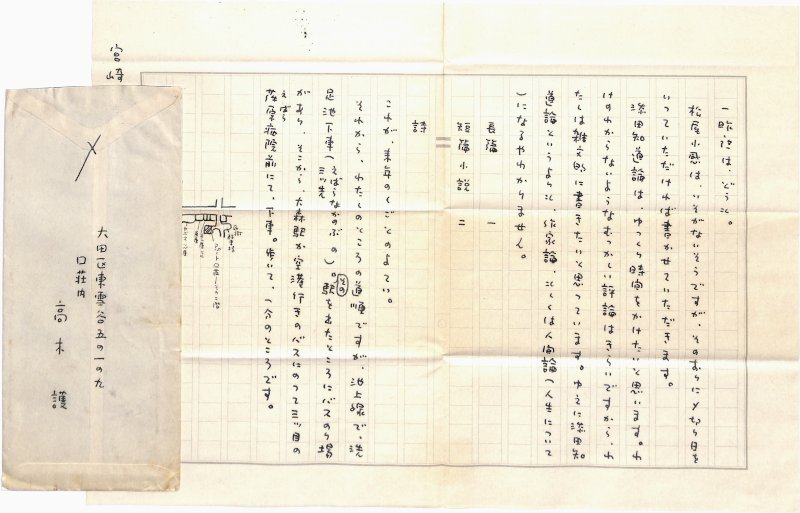 一昨夜は、どうも。
松尾小感は、いそがないそうですが、そのおりに〆切り日を
いっていただければ書かせていただきます。
深田知道論は、ゆっくり時間をかけたいと思います。わ
けのわからないようなむつかしい評論はきらいですから、わ
たしは雑文的に書きたいと思っています。ゆえに深田知
道論というよりも、作家論、もしくは人間論(人生について
)になるやわかりません。
長篇 一
短篇小説 二
詩
これが、来年のしごとのよてい。
それから、わたしのところの道順ですが、池上線で、洗
足池下車(えばらなかのぶの三ッ先)。その駅を出たところにバスのり場
があり、そこから、大森駅か空港行きのバスにのって三ツ目の
荏原病院前にて、下車。歩いて、一分のところです。
えばら
宮崎
大田区東雪谷五の一の九
口荘内
高木 護